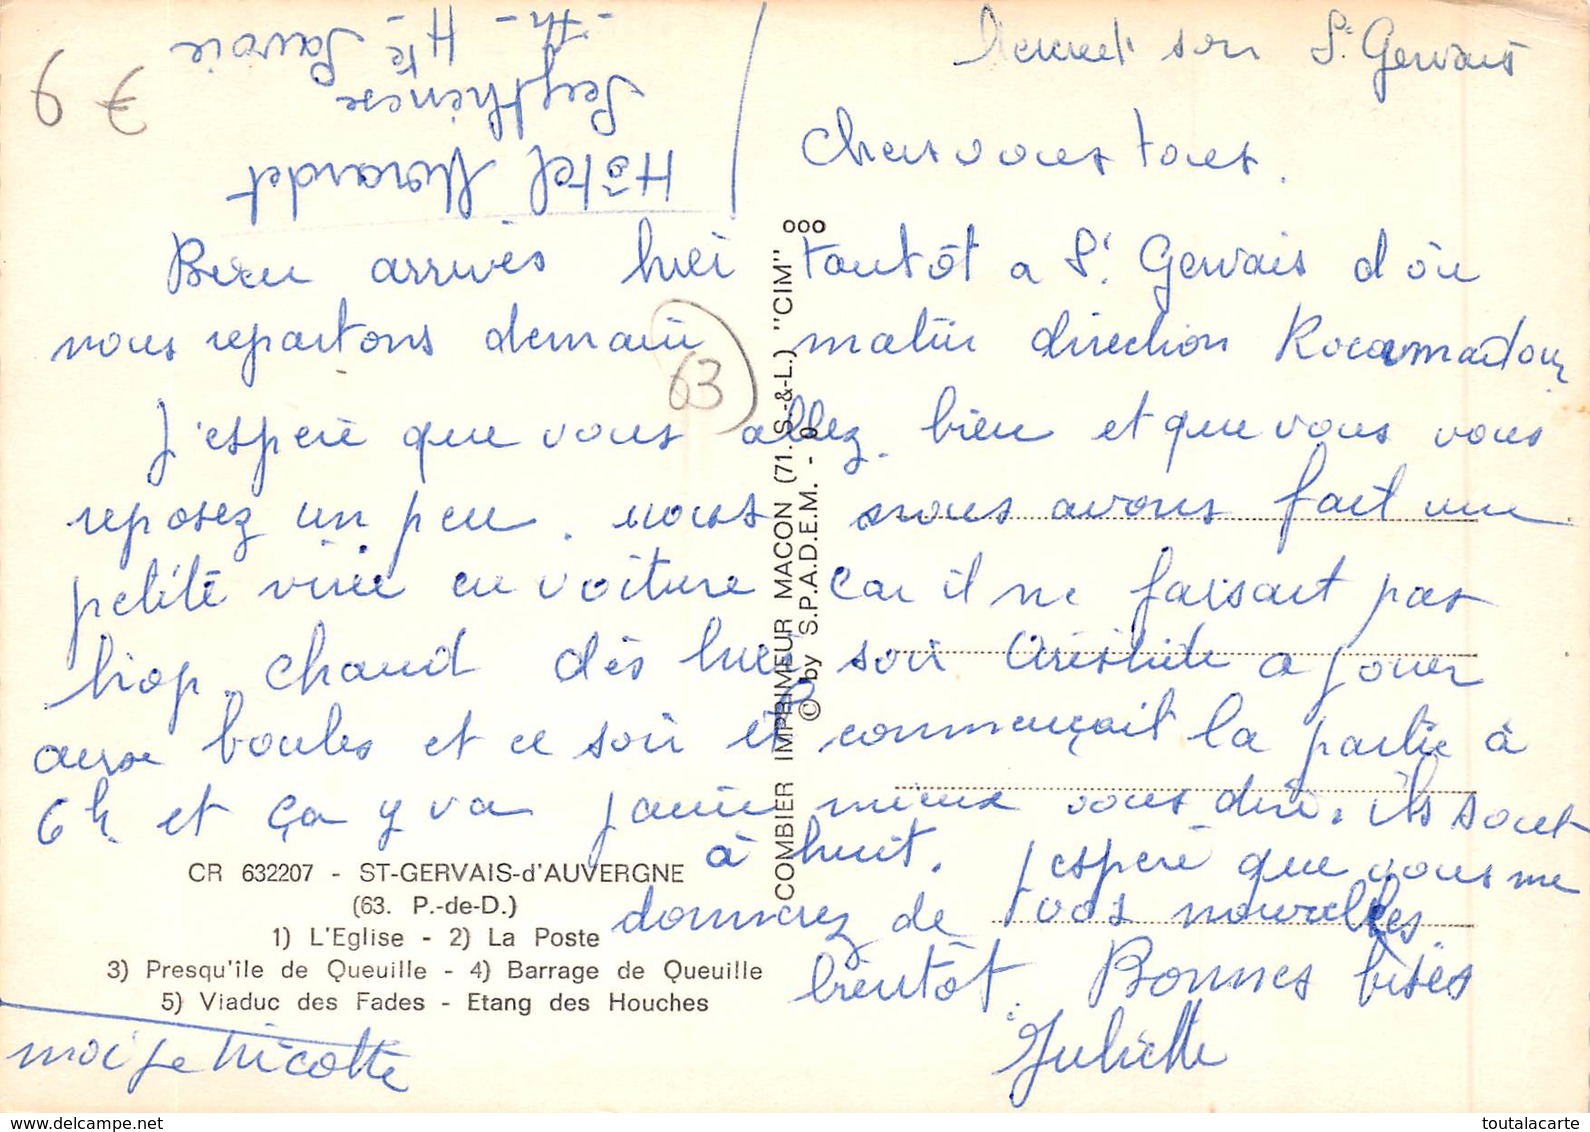 St Gervais
Chers vous tous.
Bien arrivés hier tantôt a St Gervais d'où
nous repartons demain matin direction Rocamadour
J'espère que vous allez bien et que vous vous
reposez un peu. nous nous avons fait une
petite virée en voiture car il ne faisait pas
trop chaud dès hier soir Aristide a jouer
aux boules et ce soir il commençait la partie à
6h et ça y va jamais mieux vous dire. ils sont
à huit. j'espère que vous me
donnerez de vos nouvelles
bientôt. Bonnes bises
Juliette
moi je tricotte
Hôtel Morandet
Seythenex
Hte Savoie
9 €
63
COMBIER IMPRIMEUR MACON (71. S.-&-L.) "CIM" ooo
© by S.P.A.D.E.M. - 0
CR 632207 - ST-GERVAIS-d'AUVERGNE
(63. P.-de-D.)
1) L'Eglise - 2) La Poste
3) Presqu'île de Queuille - 4) Barrage de Queuille
5) Viaduc des Fades - Etang des Houches
www.delcampe.net
toutalacarte